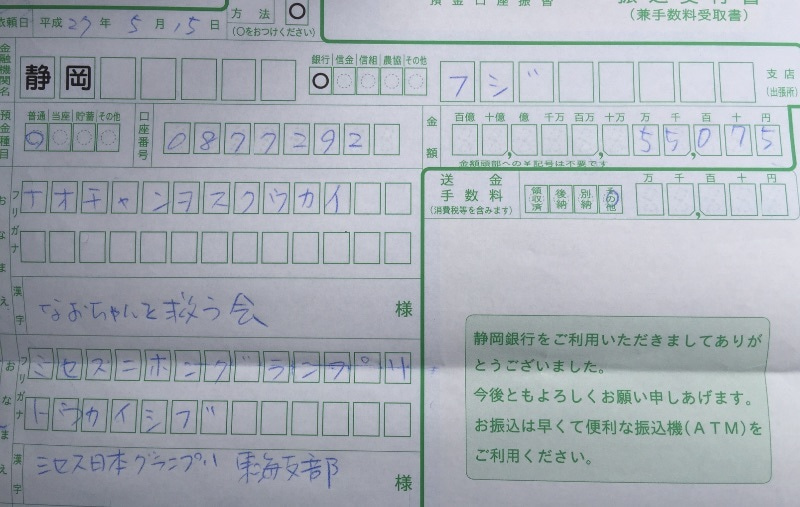 預金口座振替 振込受付書
(兼手数料受取書)
依頼日 平成 27 年 5 月 15 日
方法
(○をおつけください)
金融機関名 静岡
銀行 信金 信組 農協 その他
フジ 支店
(出張所)
預金種目 普通 当座 貯蓄 その他
口座番号 0877292
金額 百億 十億 億 千万 百万 十万 万 千 百 十 円
55,075
金額頭部への¥記号は不要です
おなまえ フリガナ ナオチャンヲスクウカイ
漢字 なおちゃんを救う会 様
おなまえ フリガナ ミセスニホングランプリ
トウカイシブ
漢字 ミセス日本グランプリ 東海支部 様
送金手数料
(消費税等を含みます)
領収済 後納 別納 その他
万 千 百 十 円
静岡銀行をご利用いただきましてありが
とうございました。
今後ともよろしくお願い申しあげます。
お振込は早くて便利な振込機(ATM)を
ご利用ください。